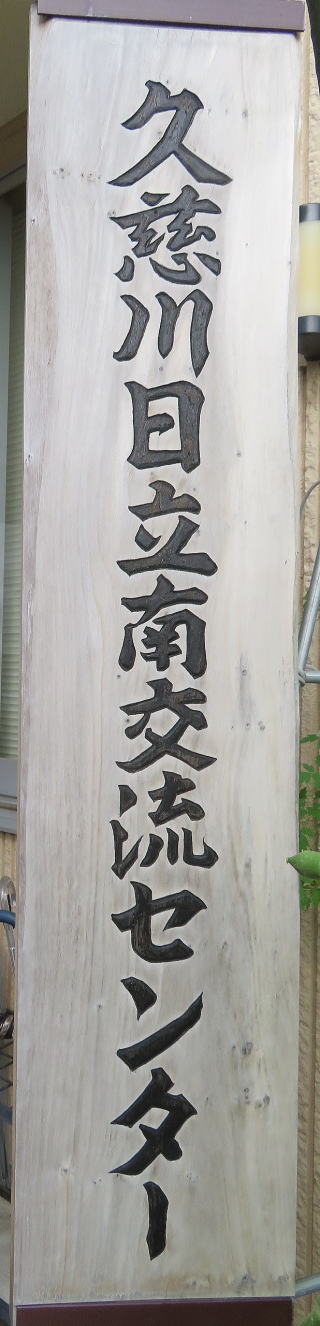 久慈川日立南交流センター